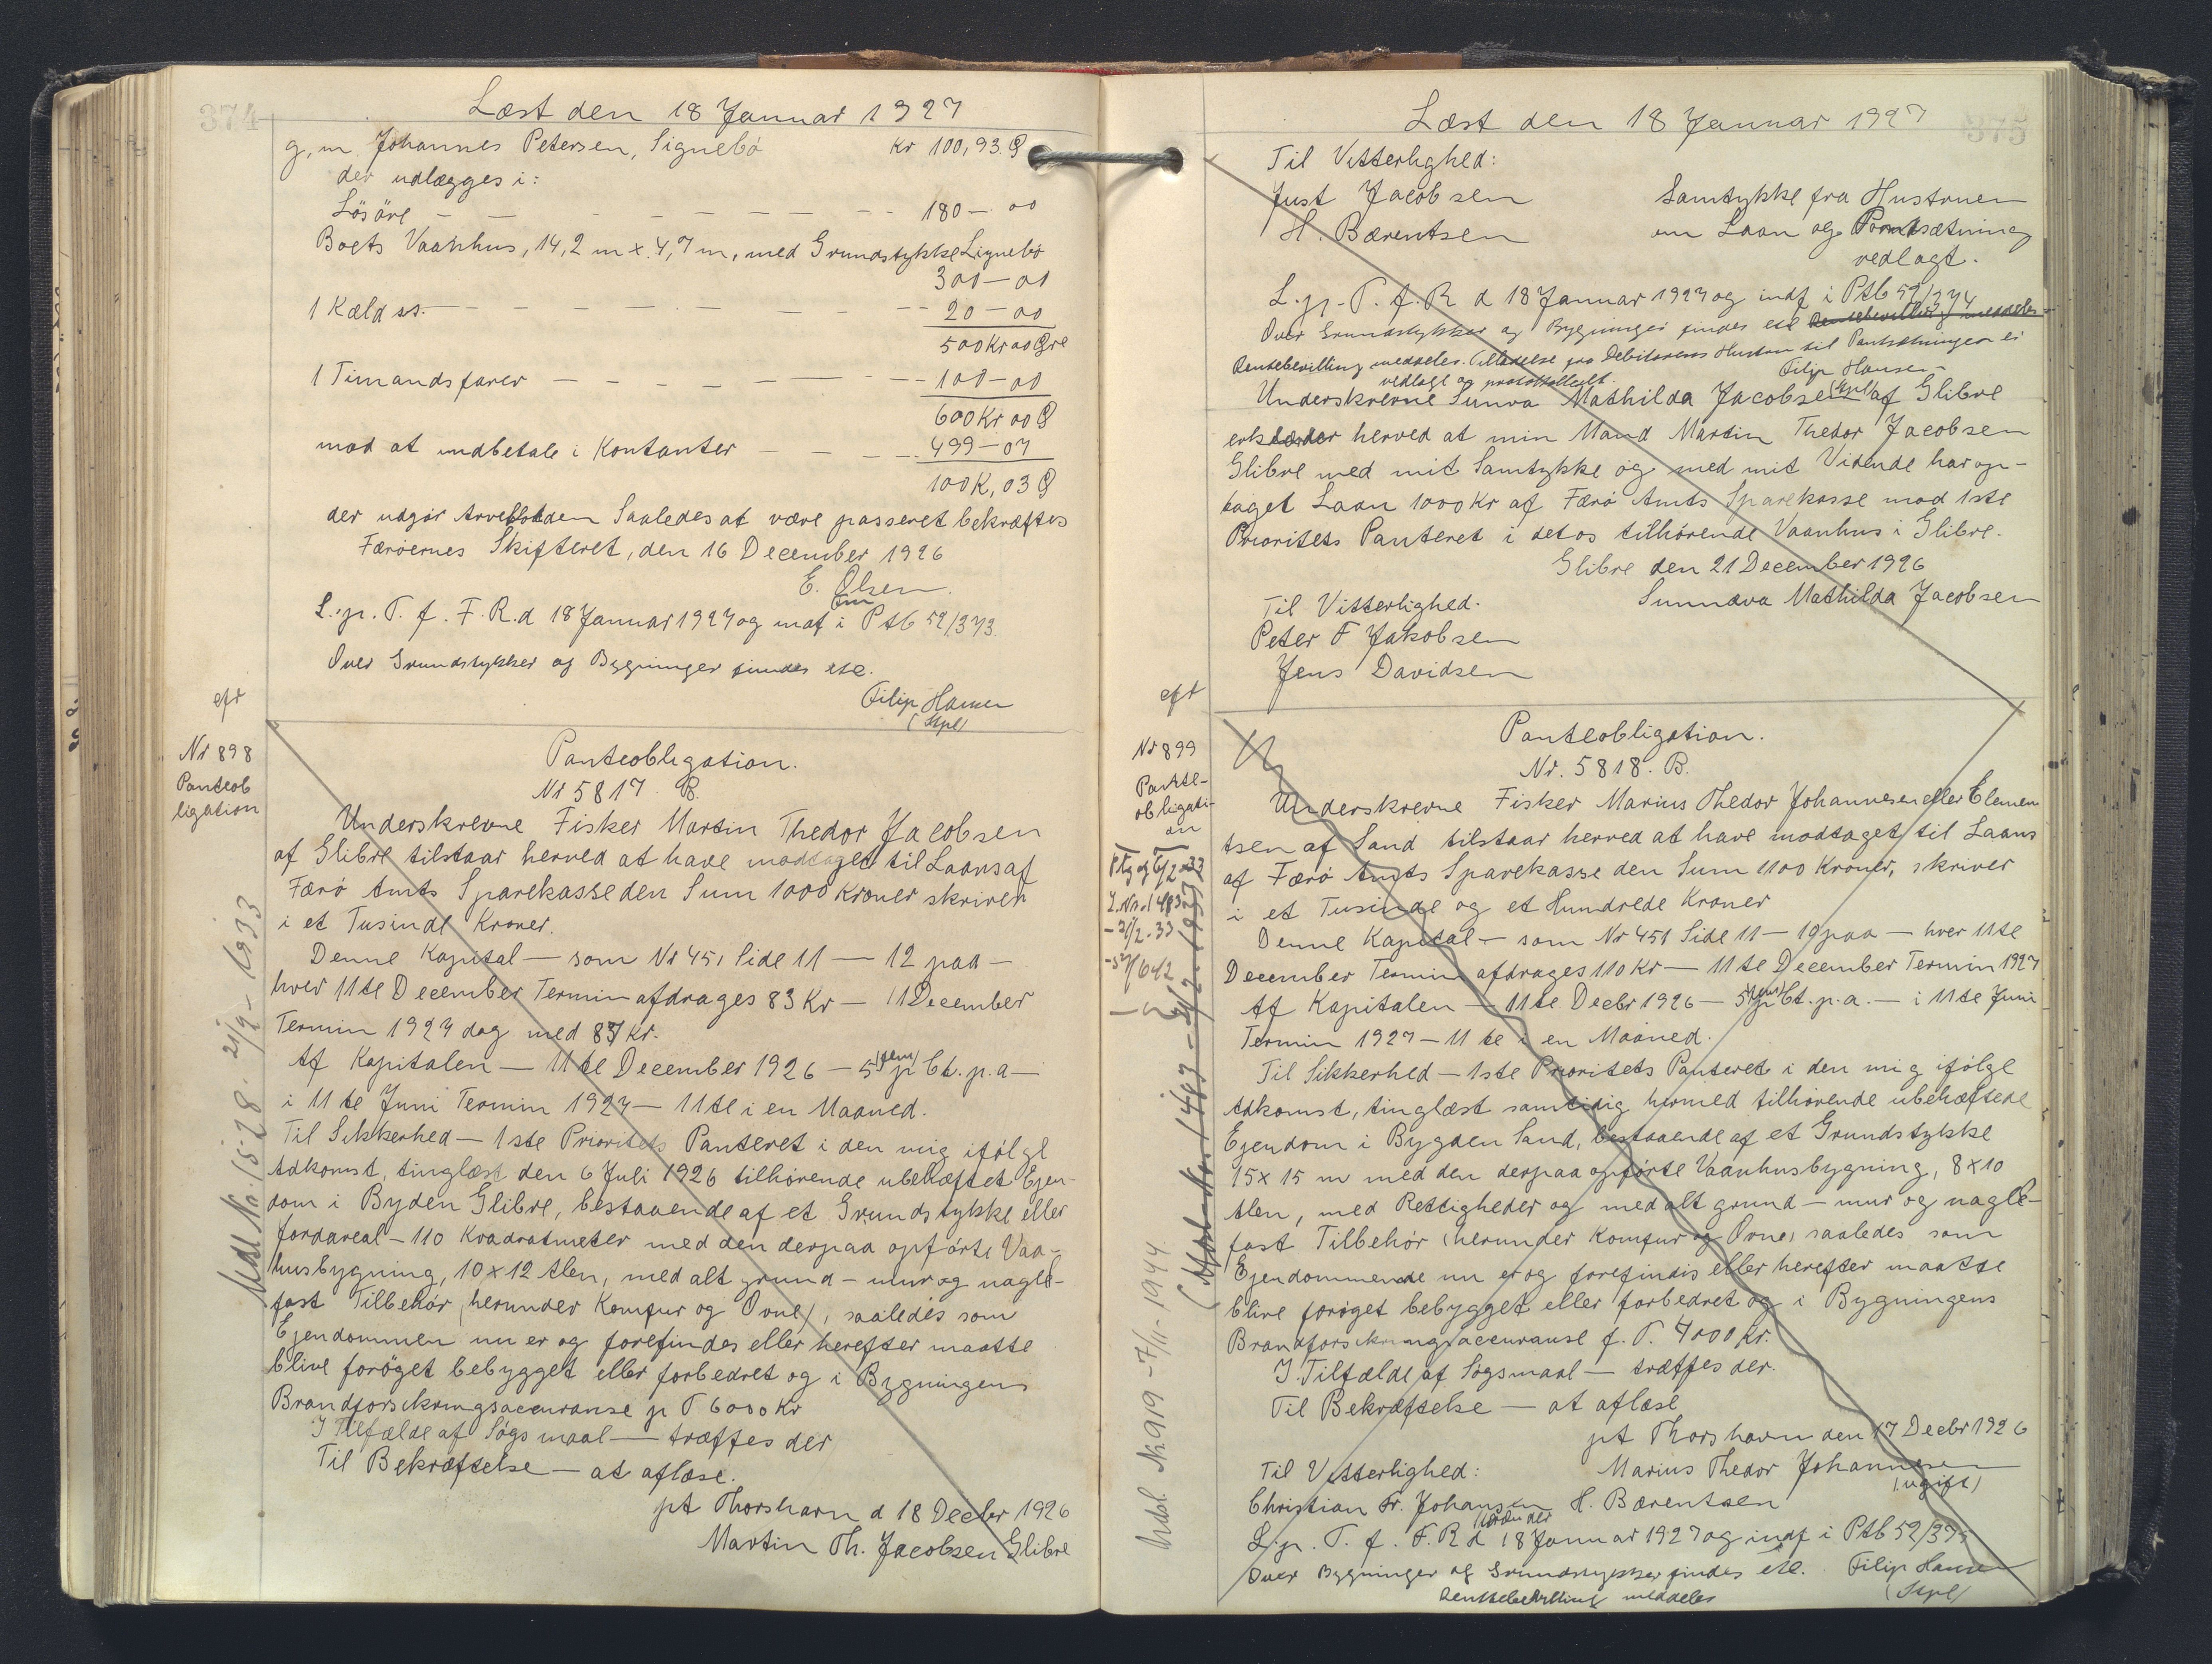 374
Læst den 18 Januar 1927
g, m Johannes Petersen, Signebö Kr 100,93 Ø
der udlægges i:
Lösöre — — — — — — — 180 — 00
Boets Vaanhus, 14,2 m x 4,7 m, med Grundstykke Lignebö
300 — 00
1 Kæld ss. — — — — — — — 20 — 00
500 Kr 00 Øre
1 Timands farer — — — — — — 100 — 00
600 Kr 00 Ø
mod at indbetale i Kontanter — — — 499 — 07
100 K, 03 Ø
der udgör Arvelodden Saaledes at være passeret bekræftes
Færöernes Skifteret, den 16 December 1926
E. Olsen
L. p. T. f. F. R. d 18 Januar 1927 og indf i Ptb 52/373.
Over Grundstykker og Bygninger findes etc.
Filip Hansen
(Stpl)
eft
Nr 898
Panteob
ligation
Panteobligation.
Nr 5817 B.
Underskrevne Fisker Martin Thedor Jacobsen
af Glibre tilstaar herved at have modtaget til Laans af
Færö Amts Sparekasse den Sum 1000 Kroner skriver
i et Tusinde Kroner.
Denne Kapital — som Nr 451 Side 11 — 12 paa —
hver 11te December Termin afdrages 83 Kr — 11 December
Termin 1927 dog med 87 Kr.
Af Kapitalen — 11te December 1926 — 5 (fem) p Ct. p. a —
i 11te Juni Termin 1927 — 11te i en Maaned.
Til Sikkerhed — 1ste Prioritets Panteret i den mig ifölge
Adkomst, tinglæst den 6 Juli 1926 tilhörende ubehæftet Ejen-
dom i Byden Glibre, bestaaende af et Grundstykke eller
Jordareal — 110 Kvadratmeter med den derpaa opförte Vaa-
husbygning, 10 x 12 Alen, med alt grund — mur og nagle-
fast Tilbehör (herunder Komfur og Ovne), saaledes som
Ejendommen nu er og forefindes eller herefter maatte
blive foröget bebygget eller forbedret og i Bygningens
Brandforsikringsaccuranse p T 6000 Kr
I Tilfælde af Sögsmaal — træffes der
Til Bekræftelse — at aflæse.
pt Thorshavn d 18 Decbr 1926
Martin Th. Jacobsen Glibre
Udsl. No. 1528. 21/2 - 1933
375
Læst den 18 Januar 1927
Til Vitterlighed:
Just Jacobsen Samtykke fra Hustruen
H. Bærentsen om Laan og Pantsætning
vedlagt.
L. p. T. f. R d 18 Januar 1927 og indf i Ptb 52/374
Over Grundstykker og Bygninger findes etc Rentebevilling meddeles
Rentebevilling meddeles. Tilladelse fra Debitorens Hustru til Pantsætningen er
vedlagt og protokolleret. Filip Hansen
(Stpl)
Underskrevne Sunva Mathilda Jacobsen af Glibre
erklærder herved at min Mand Martin Thedor Jacobsen
Glibre med mit Samtykke og med mit Vidende har op-
taget Laan 1000 Kr af Færö Amts Sparekasse mod 1ste
Prioritets Panteret i det os tilhörende Vaanhus i Glibre.
Glibre den 21 December 1926
Til Vitterlighed. Sunnæva Mathilda Jacobsen
Peter F Jakobsen
Jens Davidsen
eft
Nr 899
Pante-
obligati-
on
Panteobligation.
Nr. 5818. B.
Underskrevne Fisker Marius Thedor Johannesen eller Clemen
tsen af Sand tilstaar herved at have modtaget til Laans
af Færö Amts Sparekasse den Sum 1100 Kroner, skriver
i et Tusinde og et Hundrede Kroner
Denne Kapital — som Nr 451 Side 11 — 10 paa — hver 11te
December Termin afdrages 110 Kr — 11te December Termin 1927
Af Kapitalen — 11te Decbr 1926 — 5 (fem) p Ct. p. a. — i 11te Juni
Termin 1927 — 11te i en Maaned.
Til Sikkerhed — 1ste Prioritets Panteret i den mig ifölge
Adkomst, tinglæst samtidig hermed tilhörende ubehæftede
Ejendom i Bygden Sand, bestaaende af et Grundstykke
15 x 15 m med den derpaa opförte Vaanhusbygning, 8 x 10
Alen, med Rettigheder og med alt grund — mur og nagle-
fast Tilbehör (herunder Komfur og Ovne) saaledes som
Ejendommende nu er og forefindis eller herefter maatte
blive foröget bebygget eller forbedret og i Bygningens
Brandforsikringsaccuranse f. T. 4000 Kr.
I Tilfælde af Sögsmaal — træffes der.
Til Bekræftelse — at aflæse
pt Thorshavn den 17 Decbr 1926
Til Vitterlighed: Marius Thedor Johannesen
(ugift)
Christian Fr. Johansen H. Bærentsen
L. p. T. f. F. R d 18 Januar 1927 og indf i Ptb 52/375
Over Bygninger og Grundstykker findes etc. Filip Hansen
Rentebevilling meddeles (Stpl)
Udsl. Nr 919 - 7/11 - 1944